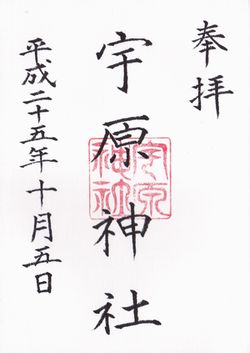 奉拝
宇原神社
宇原
神社
平成二十五年十月五日